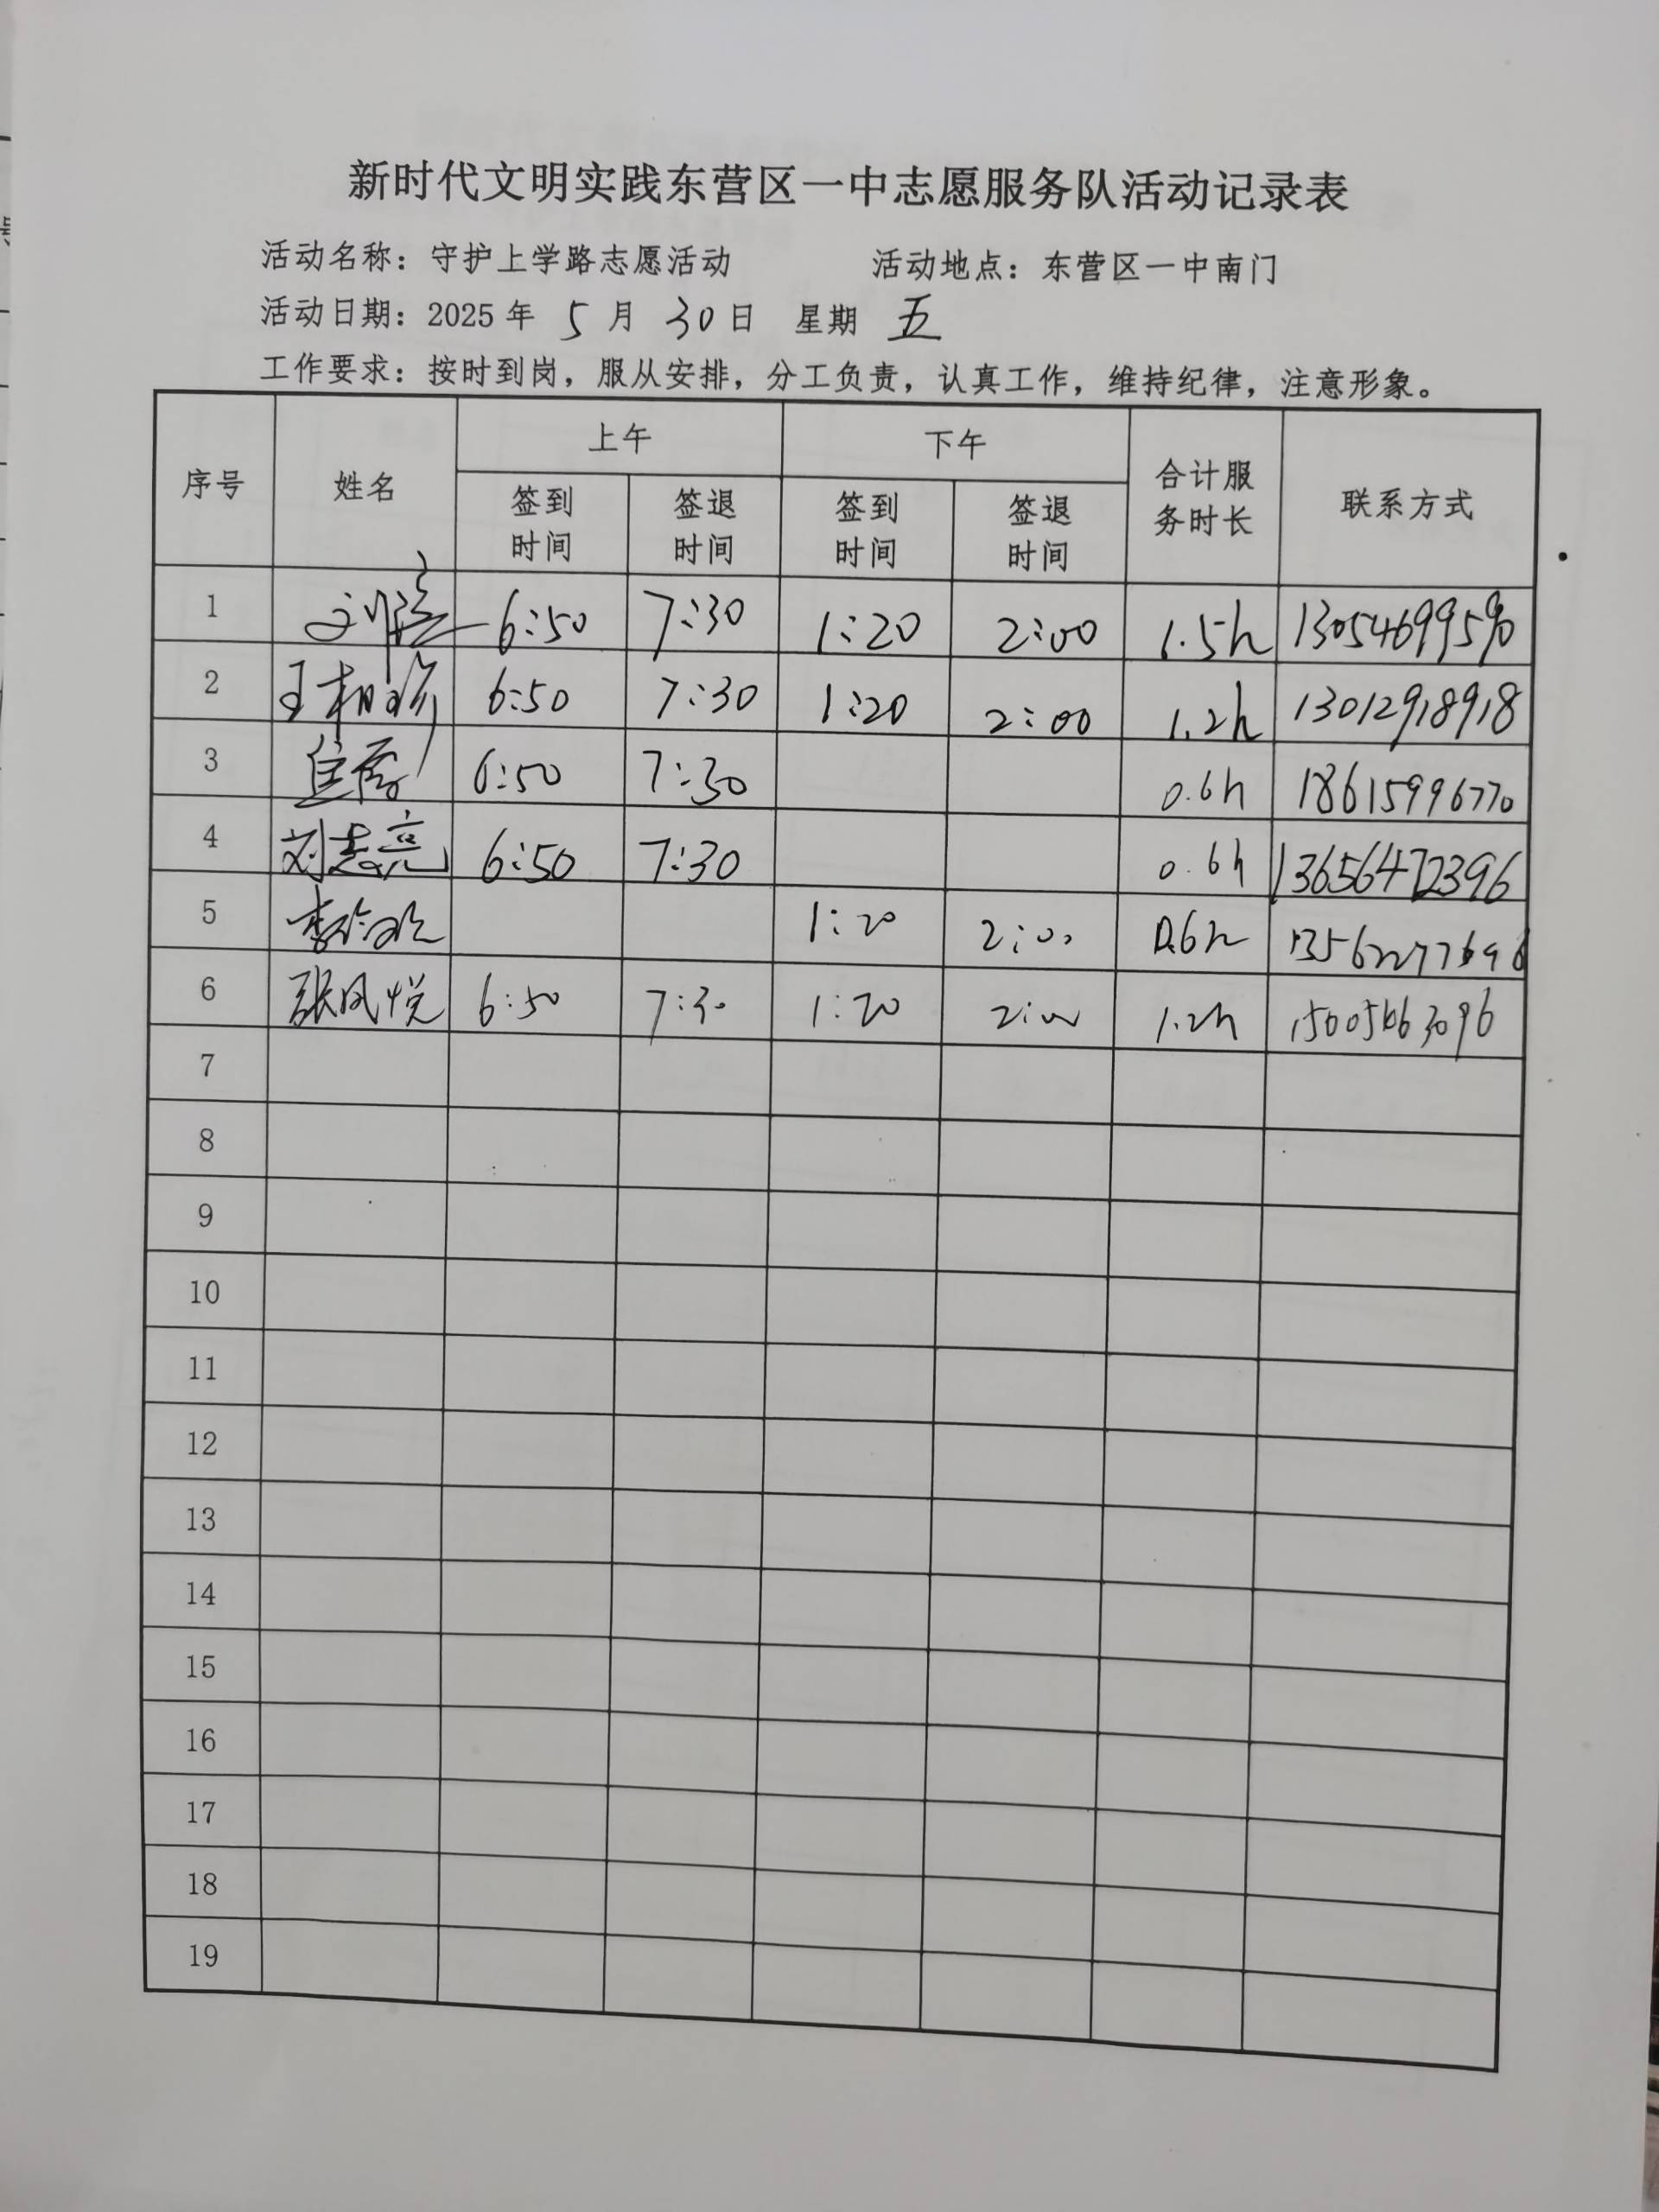 新时代文明实践东营区一中志愿服务队活动记录表
活动名称：守护上学路志愿活动 活动地点：东营区一中南门
活动日期：2025年 5 月 30日 星期 五
工作要求：按时到岗，服从安排，分工负责，认真工作，维持纪律，注意形象。
序号 姓名 上午 下午 合计服务时长 联系方式
签到时间 签退时间 签到时间 签退时间
1 6:50 7:30 1:20 2:00 1.5h
2 6:50 7:30 1:20 2:00 1.2h 13012918918
3 6:50 7:30 0.6h 18615996770
4 刘志亮 6:50 7:30 0.6h 13656472396
5 1:20 2:00 0.6h
6 张凤悦 6:50 7:30 1:20 2:00 1.2h 15005663096
7
8
9
10
11
12
13
14
15
16
17
18
19